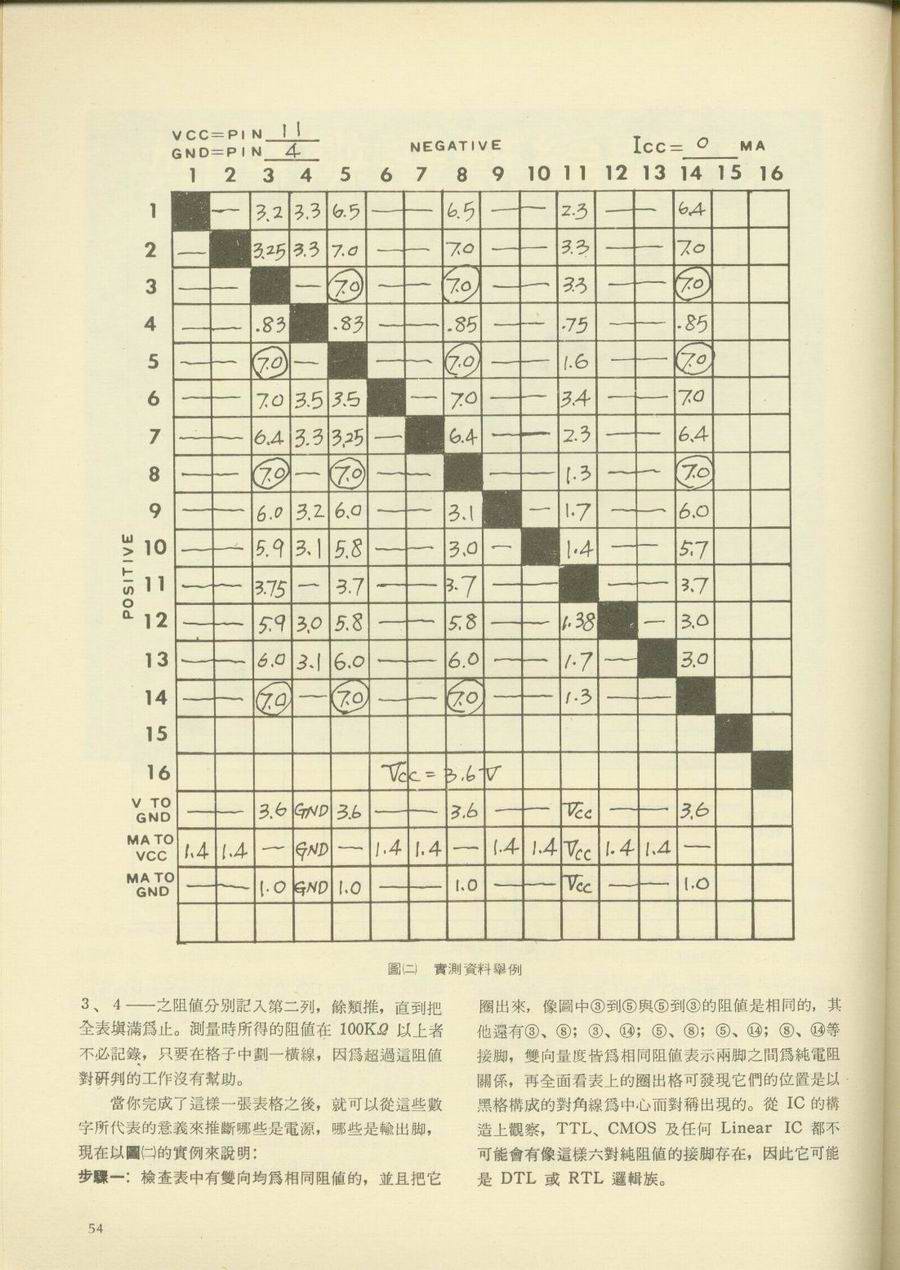 VCC=PIN 11
GND=PIN 4
NEGATIVE
ICC= 0 MA
1 2 3 4 5 6 7 8 9 10 11 12 13 14 15 16
POSITIVE
1 — 3.2 3.3 6.5 — — 6.5 — — 2.3 — — 6.4
2 — 3.25 3.3 7.0 — — 7.0 — — 3.3 — — 7.0
3 — — — 7.0 — — 7.0 — — 3.3 — — 7.0
4 — — .83 .83 — — .85 — — .75 — — .85
5 — — 7.0 — — — 7.0 — — 1.6 — — 7.0
6 — — 7.0 3.5 3.5 — 7.0 — — 3.4 — — 7.0
7 — — 6.4 3.3 3.25 — 6.4 — — 2.3 — — 6.4
8 — — 7.0 — 7.0 — — — — 1.3 — — 7.0
9 — — 6.0 3.2 6.0 — — 3.1 — 1.7 — — 6.0
10 — — 5.9 3.1 5.8 — — 3.0 — 1.4 — — 5.7
11 — — 3.75 — 3.7 — — 3.7 — — — — 3.7
12 — — 5.9 3.0 5.8 — — 5.8 — — 1.38 — 3.0
13 — — 6.0 3.1 6.0 — — 6.0 — — 1.7 — 3.0
14 — — 7.0 — 7.0 — — 7.0 — — 1.3 — —
15
16 Vcc = 3.6V
V TO GND — — 3.6 GND 3.6 — — 3.6 — — Vcc — — 3.6
MA TO VCC 1.4 1.4 — GND — 1.4 1.4 — 1.4 1.4 Vcc 1.4 1.4 —
MA TO GND — — 1.0 GND 1.0 — — 1.0 — — Vcc — — 1.0
圖㈡ 實測資料舉例
3、 4 ——之阻值分別記入第二列，餘類推，直到把
全表塡滿爲止。測量時所得的阻值在 100KΩ 以上者
不必記錄，只要在格子中劃一橫線，因爲超過這阻值
對硏判的工作沒有幫助。
當你完成了這樣一張表格之後，就可以從這些數
字所代表的意義來推斷哪些是電源，哪些是輸出脚，
現在以圖㈡的實例來說明：
步驟一：檢查表中有雙向均爲相同阻值的，並且把它
圈出來，像圖中③到⑤與⑤到③的阻值是相同的，其
他還有③、⑧；③、⑭；⑤、⑧；⑤、⑭；⑧、⑭等
接脚，雙向量度皆爲相同阻值表示兩脚之間爲純電阻
關係，再全面看表上的圈出格可發現它們的位置是以
黑格構成的對角線爲中心而對稱出現的。從 IC 的構
造上觀察，TTL、CMOS 及任何 Linear IC 都不
可能會有像這樣六對純阻值的接脚存在，因此它可能
是 DTL 或 RTL 邏輯族。
54